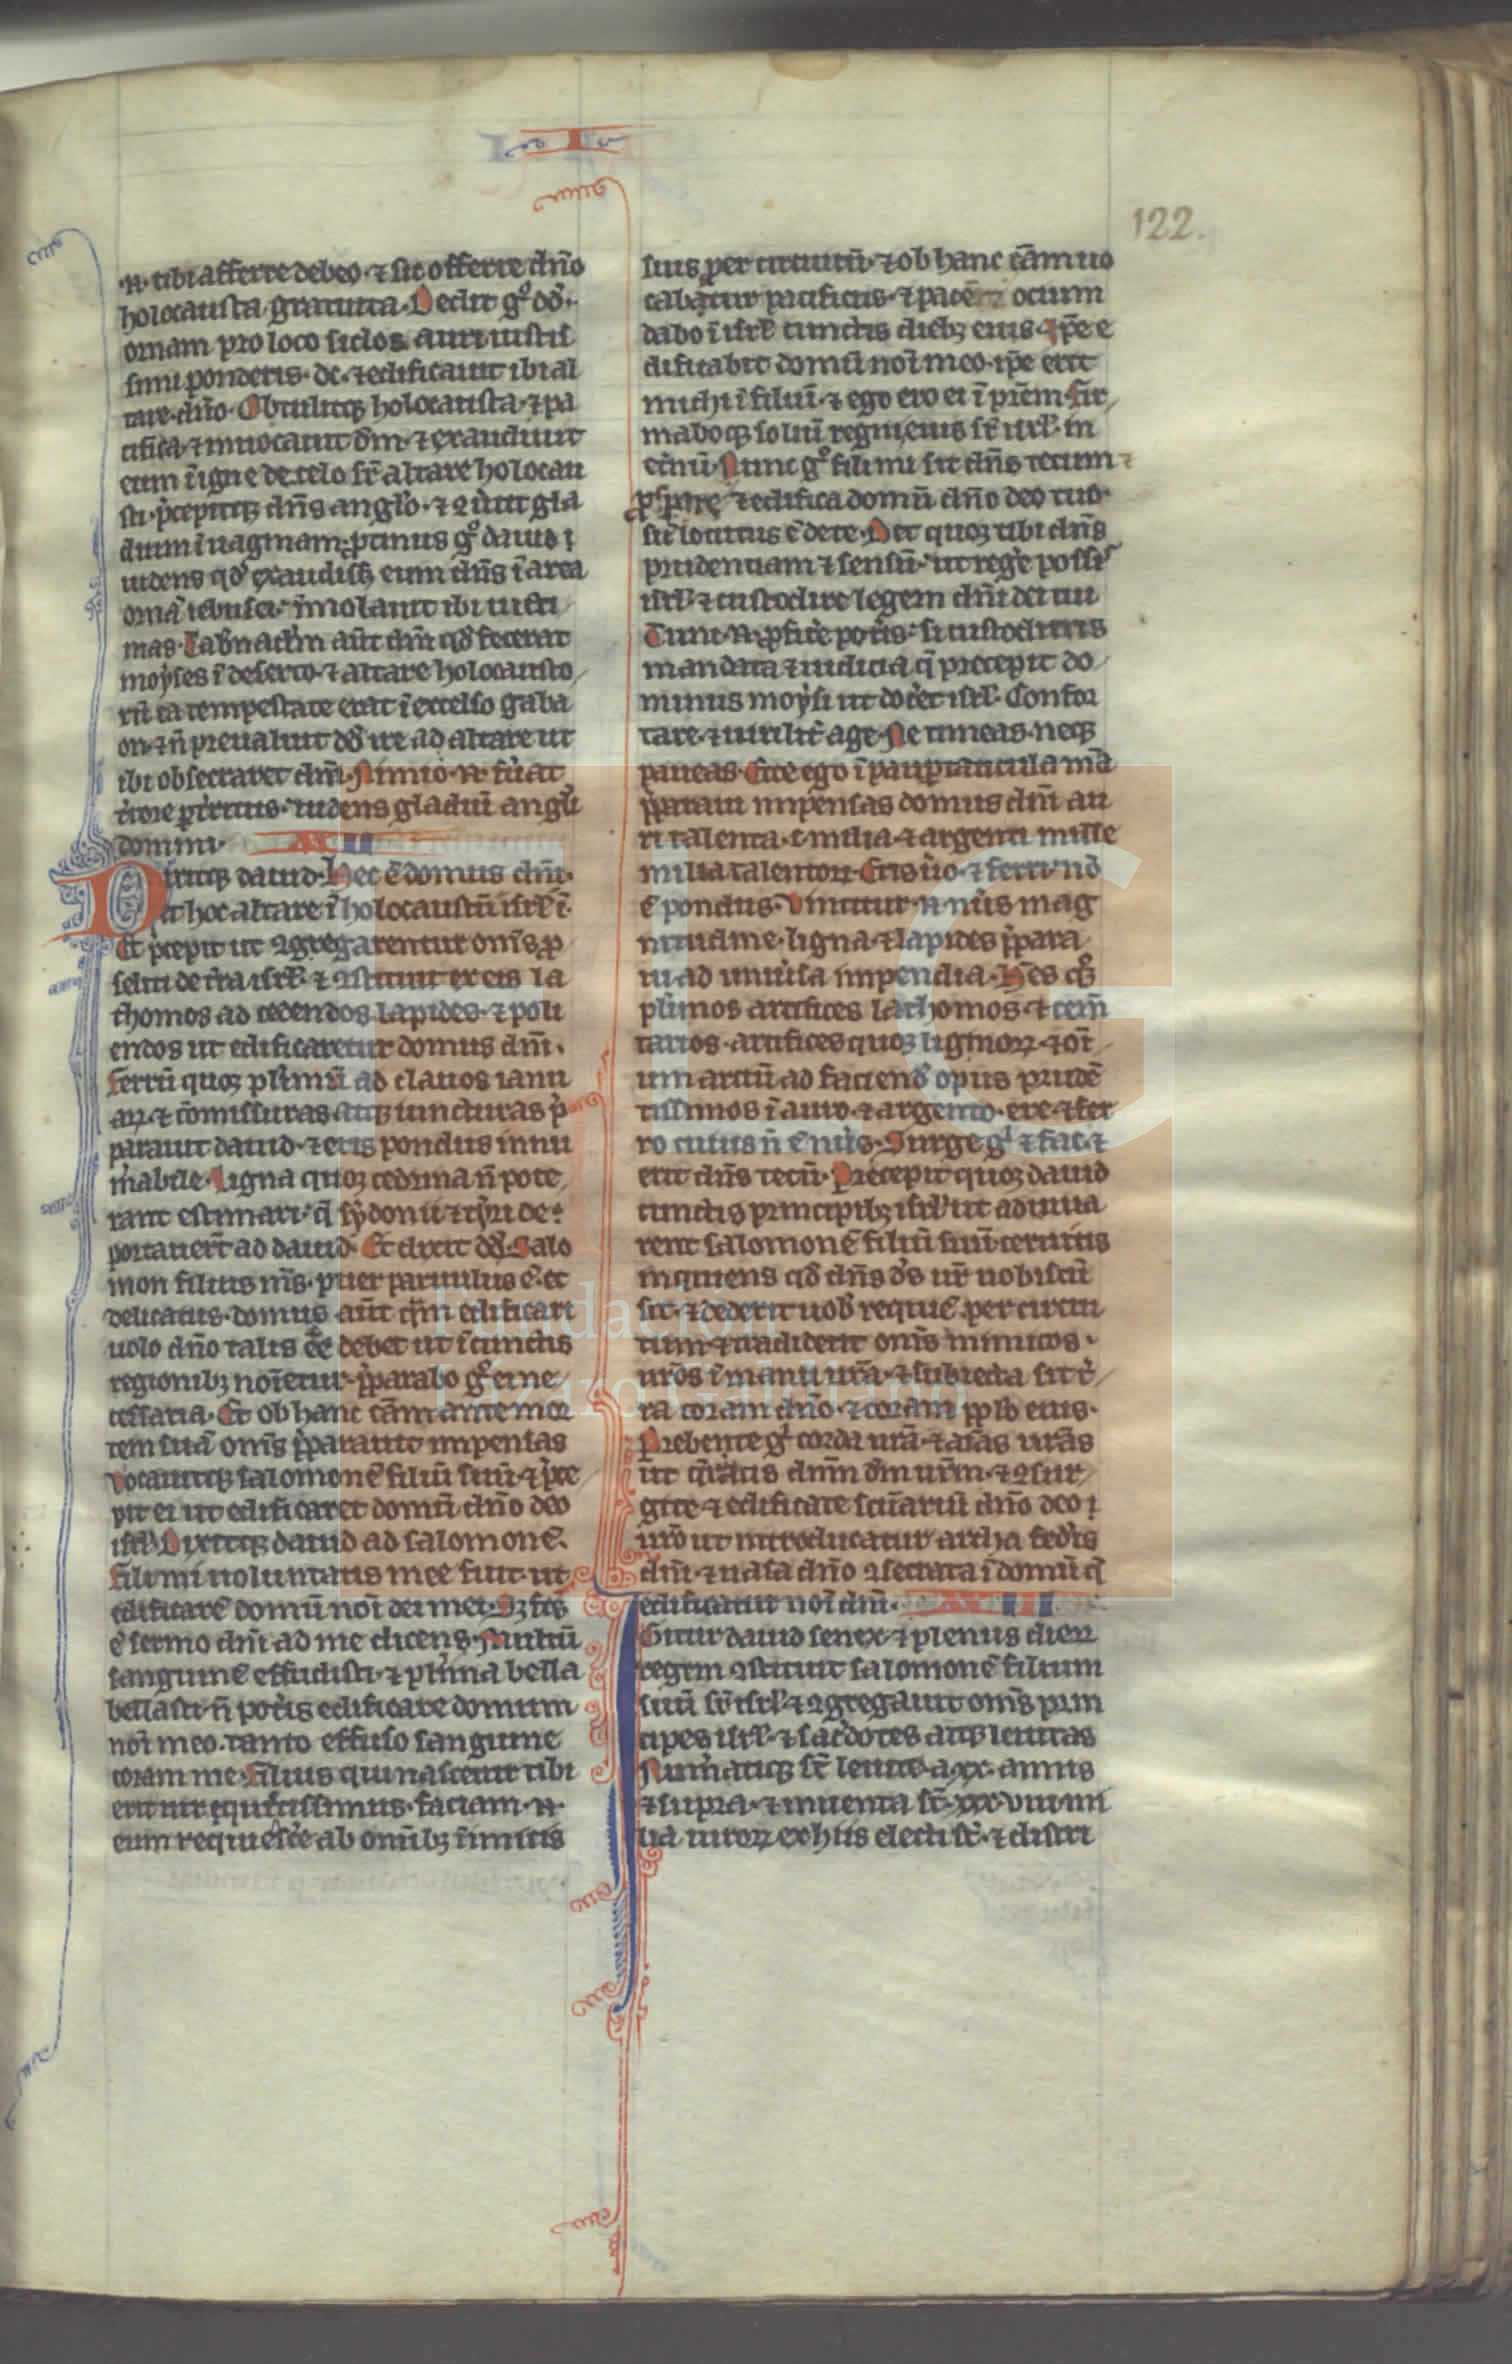 I
122.
.n. tibi afferre debeo. ⁊ sic offerre dn̄o
holocausta gratuita. Dedit gͦ dd̄.
ornam pro loco siclos auri iustis
simi ponderis. dc. ⁊ edificauit ibi al
tare dn̄o. Obtulitqꝫ holocausta. ⁊ pa
cifica. ⁊ inuocauit dm̄. ⁊ exaudiuit
eum ī igne de celo sr̄ altare holocau
sti. p̄cepitqꝫ dn̄s anglo. ⁊ ꝯuͥtit gla
dium ī uaginam. ꝓtinus gͦ dauid
uidens qd̄ exaudissꝫ eum dn̄s ī area
ornā iebusei. īmolauit ibi uicti
mas. Tabnaclm̄ aūt dn̄i qd̄ fecerat
moyses ī deserto. ⁊ altare holocausto
rū ea tempestate erat ī excelso gaba
on. ⁊ n̄ preualuit dd̄ ire ad altare ut
ibi obsecraret dm̄. Nimio .n. fūat
tīore ꝑtritus. uidens gladiū angli
domini.
Dixitqꝫ dauid. Hec ē domus dn̄i.
et hoc altare ī holocaustū isrl̄ ī.
Et p̄cepit ut ꝯgregarentur om̄s ꝓ
seliti de tr̄a isrl̄. ⁊ ꝯstituit ex eis la
thomos ad cedendos lapides. ⁊ poli
endos ut edificaretur domus dn̄i.
ferrū quoqꝫ pl̄imū ad clauos ianu
aꝝ. ⁊ cōmissuras atqꝫ iuncturas p̄
parauit dauid. ⁊ eris pondus innu
m̄abile. Ligna quoqꝫ cedrina n̄ pote
rant estimari. q̄ sydonii ⁊ tyrii de
portauer̄t ad dauid. Et dixit dd̄. Salo
mon filius m̄s. puer paruulus ē. et
delicatus. domus aūt q̄m edificari
uolo dn̄o talis ēe debet ut ī cunctis
regionibꝫ noīetur. p̄parabo gͦ ei ne
cessaria. Et ob hanc cām ante mor
tem suā om̄s p̄parauit impensas
Vocauitqꝫ salomonē filiū suū. ⁊ p̄ce
pit ei ut edificaret domū dn̄o deo
isrl̄. Dixitqꝫ dauid ad salomonē.
fili mi uoluntatis mee fuit. ut
edificarē domū noī dei mei. Sꝫ fcs̄
ē sermo dn̄i ad me dicens. Multū
sanguinē effudisti. ⁊ pl̄ima bella
bellasti. n̄ pot̄is edificare domum
noī meo. tanto effuso sanguine
coram me. Filius qui nascetur tibi
erit uir quietissimus. faciam .n.
eum requiesc̄e ab om̄ibꝫ īimicis
suis per circuitū. ⁊ ob hanc cām uo
cabitur pacificus. ⁊ pacē ⁊ ocium
dabo ī isrl̄ cunctis diebꝫ eius. ip̄e e
dificabit domū noī meo. ip̄e erit
michi ī filiū. ⁊ ego ero ei ī pr̄em. Fir
maboqꝫ soliū regni eius sr̄ isrl̄. in
et̄nū. Nunc gͦ fili mi sit dn̄s tecum ⁊
ꝓsꝑare ⁊ edifica domū dn̄o deo tuo.
sic̄ locutus ē de te. Det quoqꝫ tibi dn̄s
prudentiam ⁊ sensū. ut reḡe possis
isrl̄. ⁊ custodire legem dn̄i dei tui
Tunc .n. ꝓfic̄e pot̄is. si custodieris
mandata ⁊ iudicia q̄ precepit do
minus moysi ut doc̄et isrl̄. Confor
tare. ⁊ uirilit̄ age. Ne timeas. neqꝫ
paueas. Ecce ego ī pauꝑtaticula mā
p̄paraui impensas domus dn̄i au
ri talenta. c. milia. ⁊ argenti mille
milia talentoꝝ. Eris uͦo. ⁊ ferri. nō
ē pondus. Vincitur .n. nūs mag
nitudine. ligna ⁊ lapides p̄para
ui ad uniūsa impendia. Hēs qꝫ
pl̄imos artifices lathomos. ⁊ cem̄
tarios. artifices quoqꝫ lignoꝝ. ⁊ oī
um artiū ad faciend̄ opus prudē
tissimos ī auro. ⁊ argento. ere. ⁊ fer
ro cuius n̄ ē nūs. Surge gͦ ⁊ fac. ⁊
erit dn̄s tecū. Precepit quoqꝫ dauid
cunctis principibꝫ isrl̄. ut adiuua
rent salomonē filiū suū. cernitis
inquiens qd̄ dn̄s ds̄ ur̄ uobiscū
sit. ⁊ dederit uob̄ requiē per circui
tum ⁊ tradiderit om̄s inimicos
ur̄os ī manu ur̄a. ⁊ subiecta sit t̄
ra coram dn̄o. ⁊ coram pplo eius.
Prebete gͦ corda ur̄a. ⁊ aīas ur̄as
ut q̄ratis dn̄m dm̄ ur̄m. ⁊ ꝯsur
gite ⁊ edificate sc̄uariū dn̄o deo
ur̄o ut introducatur archa fed̄is
dn̄i. ⁊ uasa dn̄o ꝯsecrata ī domū q̄
edificatur noī dn̄i.
Igitur dauid senex. ⁊ plenus dieꝝ
regem ꝯstituit salomonē filium
suū sr̄ isrl̄. ⁊ ꝯgregauit om̄s prin
cipes isrl̄. ⁊ sac̄dotes atqꝫ leuitas
Num̄atiqꝫ st̄ leuite. a. xx. annis
⁊ supra. ⁊ inuenta st̄. xxx. viii. mi
lia uiroꝝ. ex hiis electi st̄. ⁊ distri
FLG
Fundación
Lázaro Galdiano